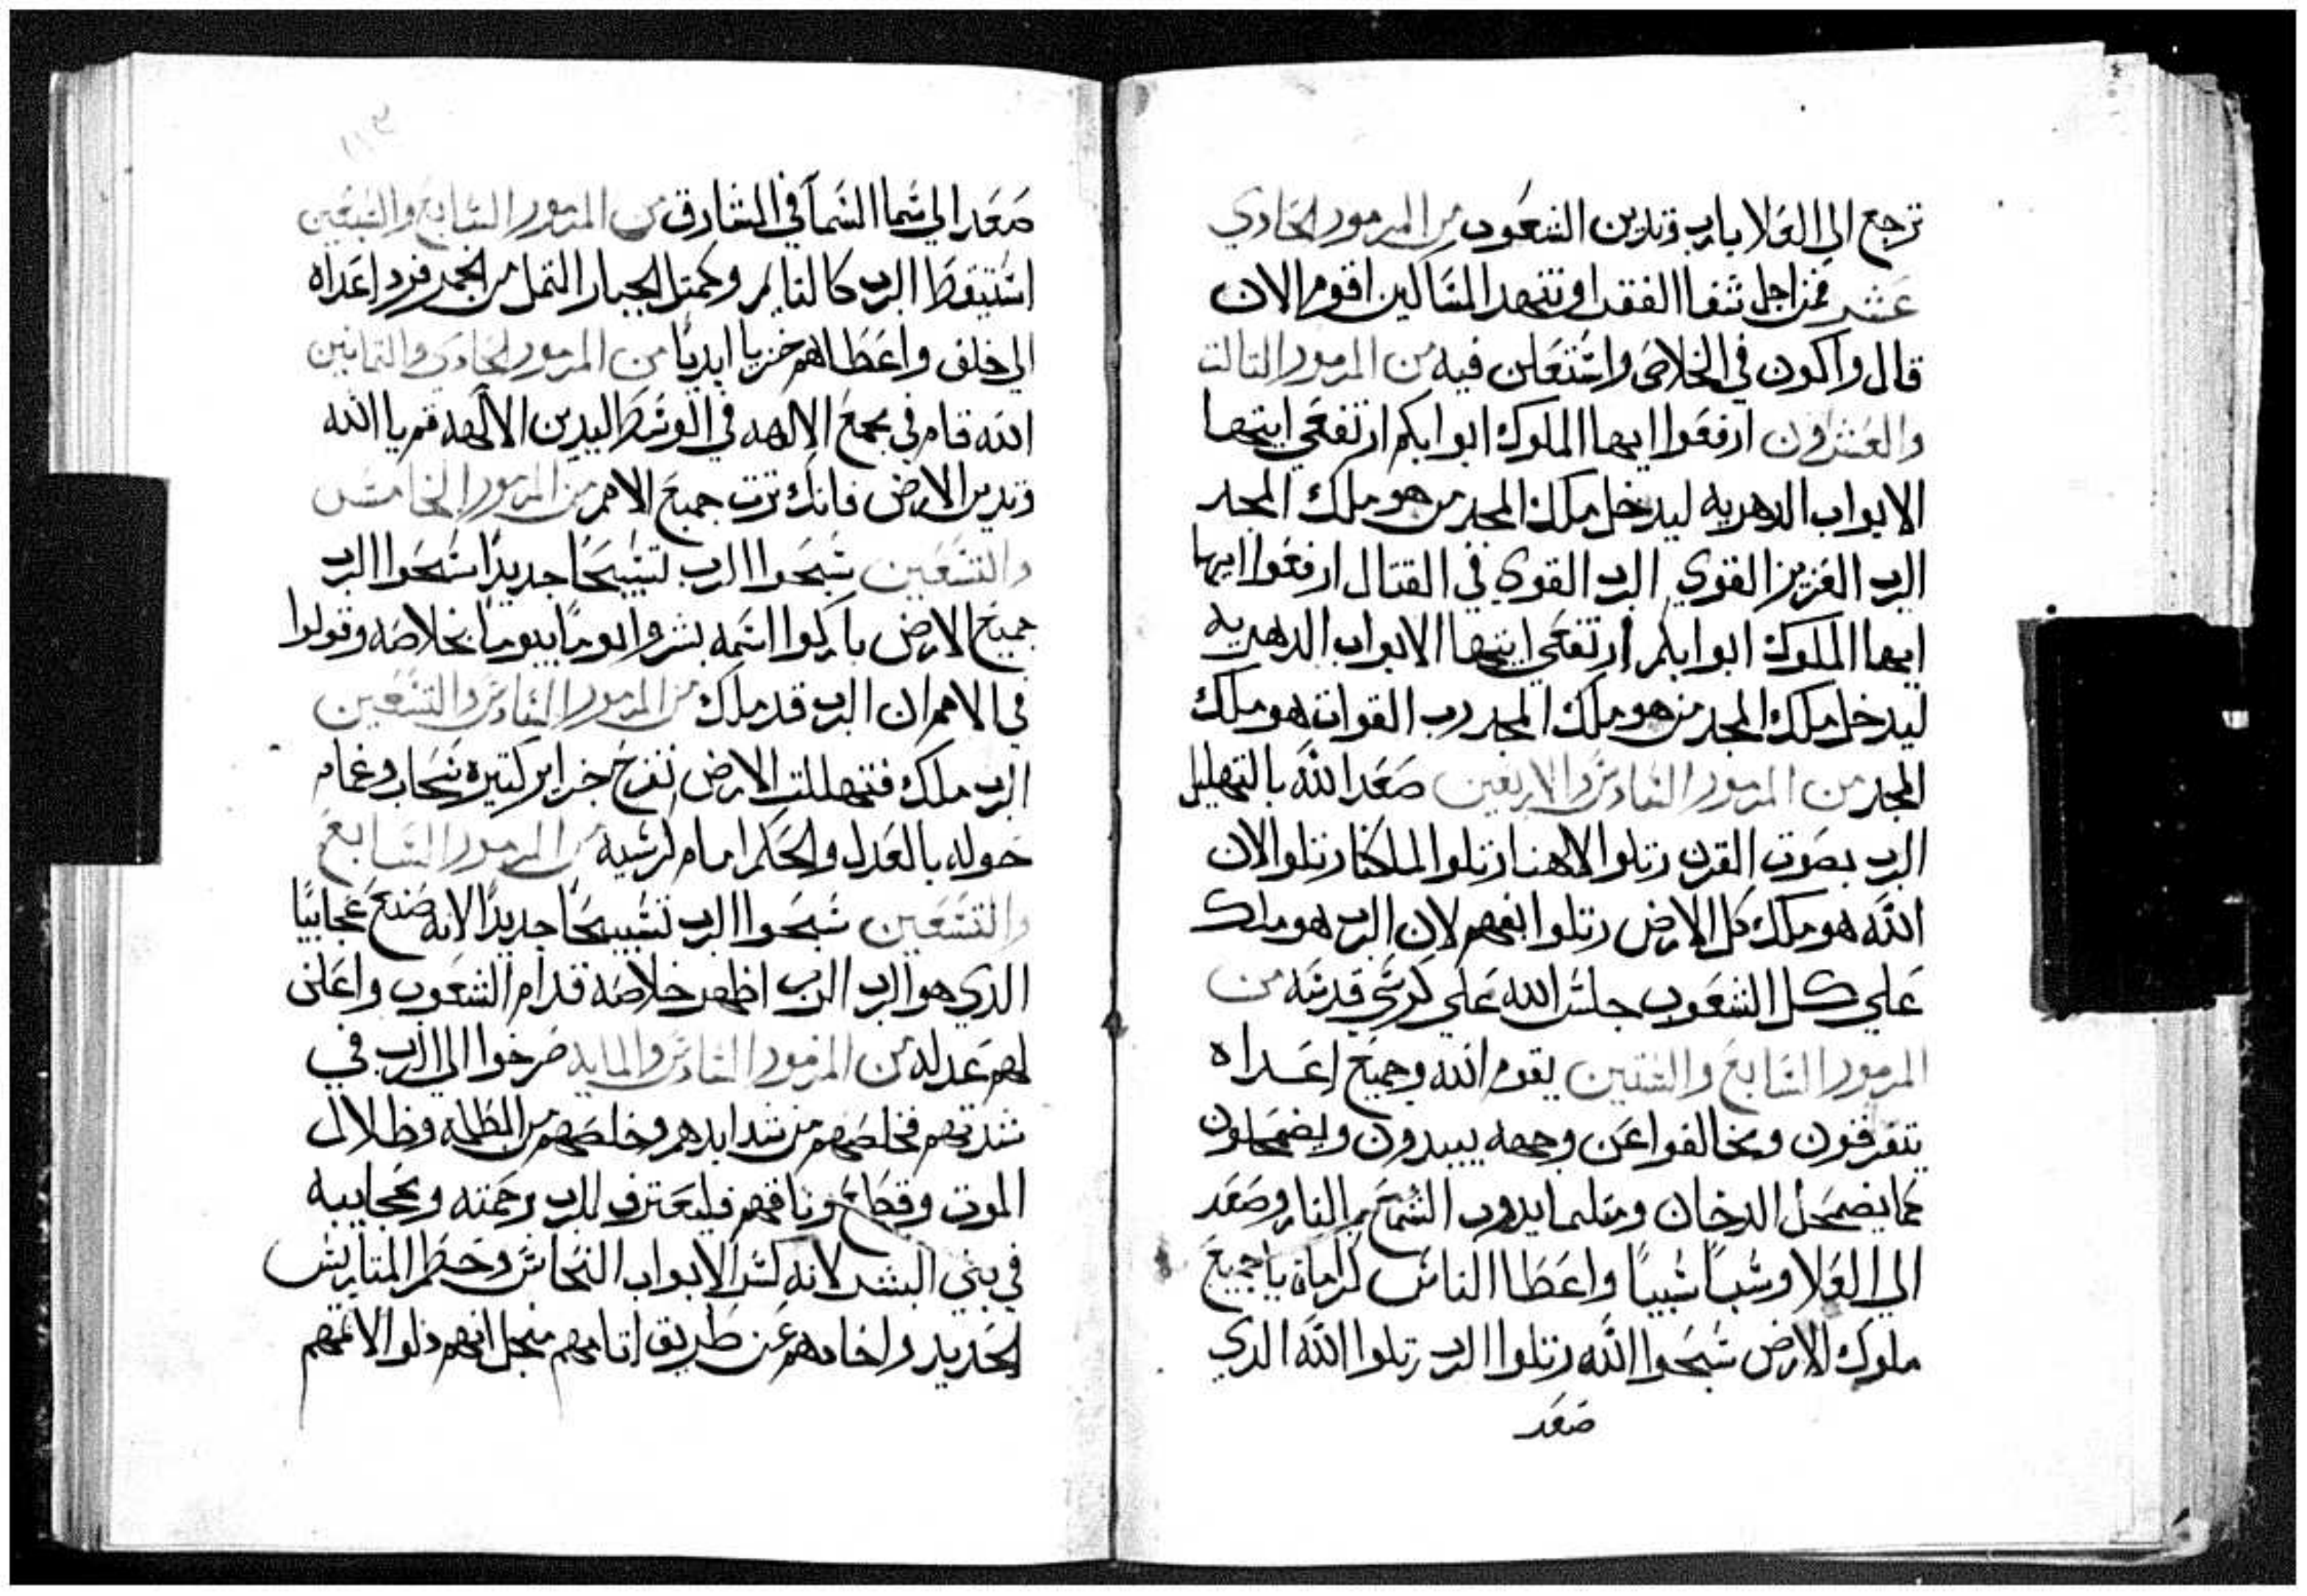 ترجع الي العلا يارب وتدين الشعوب من المزمور الحادي
عشر فمن اجل شفا الفقرا وتنهد المساكين اقوم الان
قال واكون في الخلاص واستعلن فيه من المزمور التالت
والعشرون ارفعوا ايها الملوك ابوابكم ارتفعي ايتها
الابواب الدهريه ليدخل ملك المجد من هو ملك المجد
الرب العزيز القوي الرب القوي في القتال ارفعوا ايها
ايها الملوك ابوابكم ارتفعي ايتها الابواب الدهريه
ليدخل ملك المجد من هو ملك المجد رب القوات هو ملك
المجد من المزمور السادس والاربعين صعد الله بالتهليل
الرب بصوت القرن رتلوا لالاهنا رتلوا لملكنا رتلوا لان
الله هو ملك كل الارض رتلوا بفهم لان الرب هو ملك
علي كل الشعوب جلس الله علي كرسي قدسه من
المزمور السابع والستين يقوم الله وجميع اعداه
يتفرقون ومخالفوا عن وجهه يبيدون ويضمحلون
كما يضمحل الدخان ومتلما يدوب الشمع من النار وصعد
الي العلا وسبا سبيا واعطا الناس كرامات يا جميع
ملوك الارض سبحوا الله رتلوا الرب رتلوا الله الدي
صعد
صعد الي سما السما في المشارق من المزمور السابع والسبعين
استيقظ الرب كالنايم وكمتل الجبار التمل من الخمر فرد اعداه
الي خلف واعطاهم خزيا ابديا من المزمور الحادي والتمانين
الله قام في مجمع الالهه في الوسط ليدين الالهه قم يا الله
وتدين الارض فانك ترت جميع الامم من المزمور الخامس
والتسعين سبحوا الرب تسبيحا جديدا سبحوا الرب
جميع الارض باركوا اسمه بشروا يوما بيوما بخلاصه وقولوا
في الامم ان الرب قد ملك من المزمور السادس والتسعين
الرب ملك فتتهللت الارض تفرح جزاير كتيره سحاب وغمام
حوله بالعدل والحكم امام كرسيه من المزمور السابع
والتسعين سبحوا الرب تسبيحا جديدا لانه صنع عجايبا
الدي هو الرب الرب اظهر خلاصه قدام الشعوب واعلن
لهم عدله من المزمور السادس والمايه صرخوا الي الرب في
شدتهم فخلصهم من شدايدهم وخلصهم من الظلمه وظلال
الموت وقطع وتاقهم فليعترف للرب برحمته وعجايبه
في بني البشر لانه كسر الابواب النحاس وحطم المتاريس
الحديد واخادهم عن طريق اتامهم منجل انهم دلوا لاتمهم